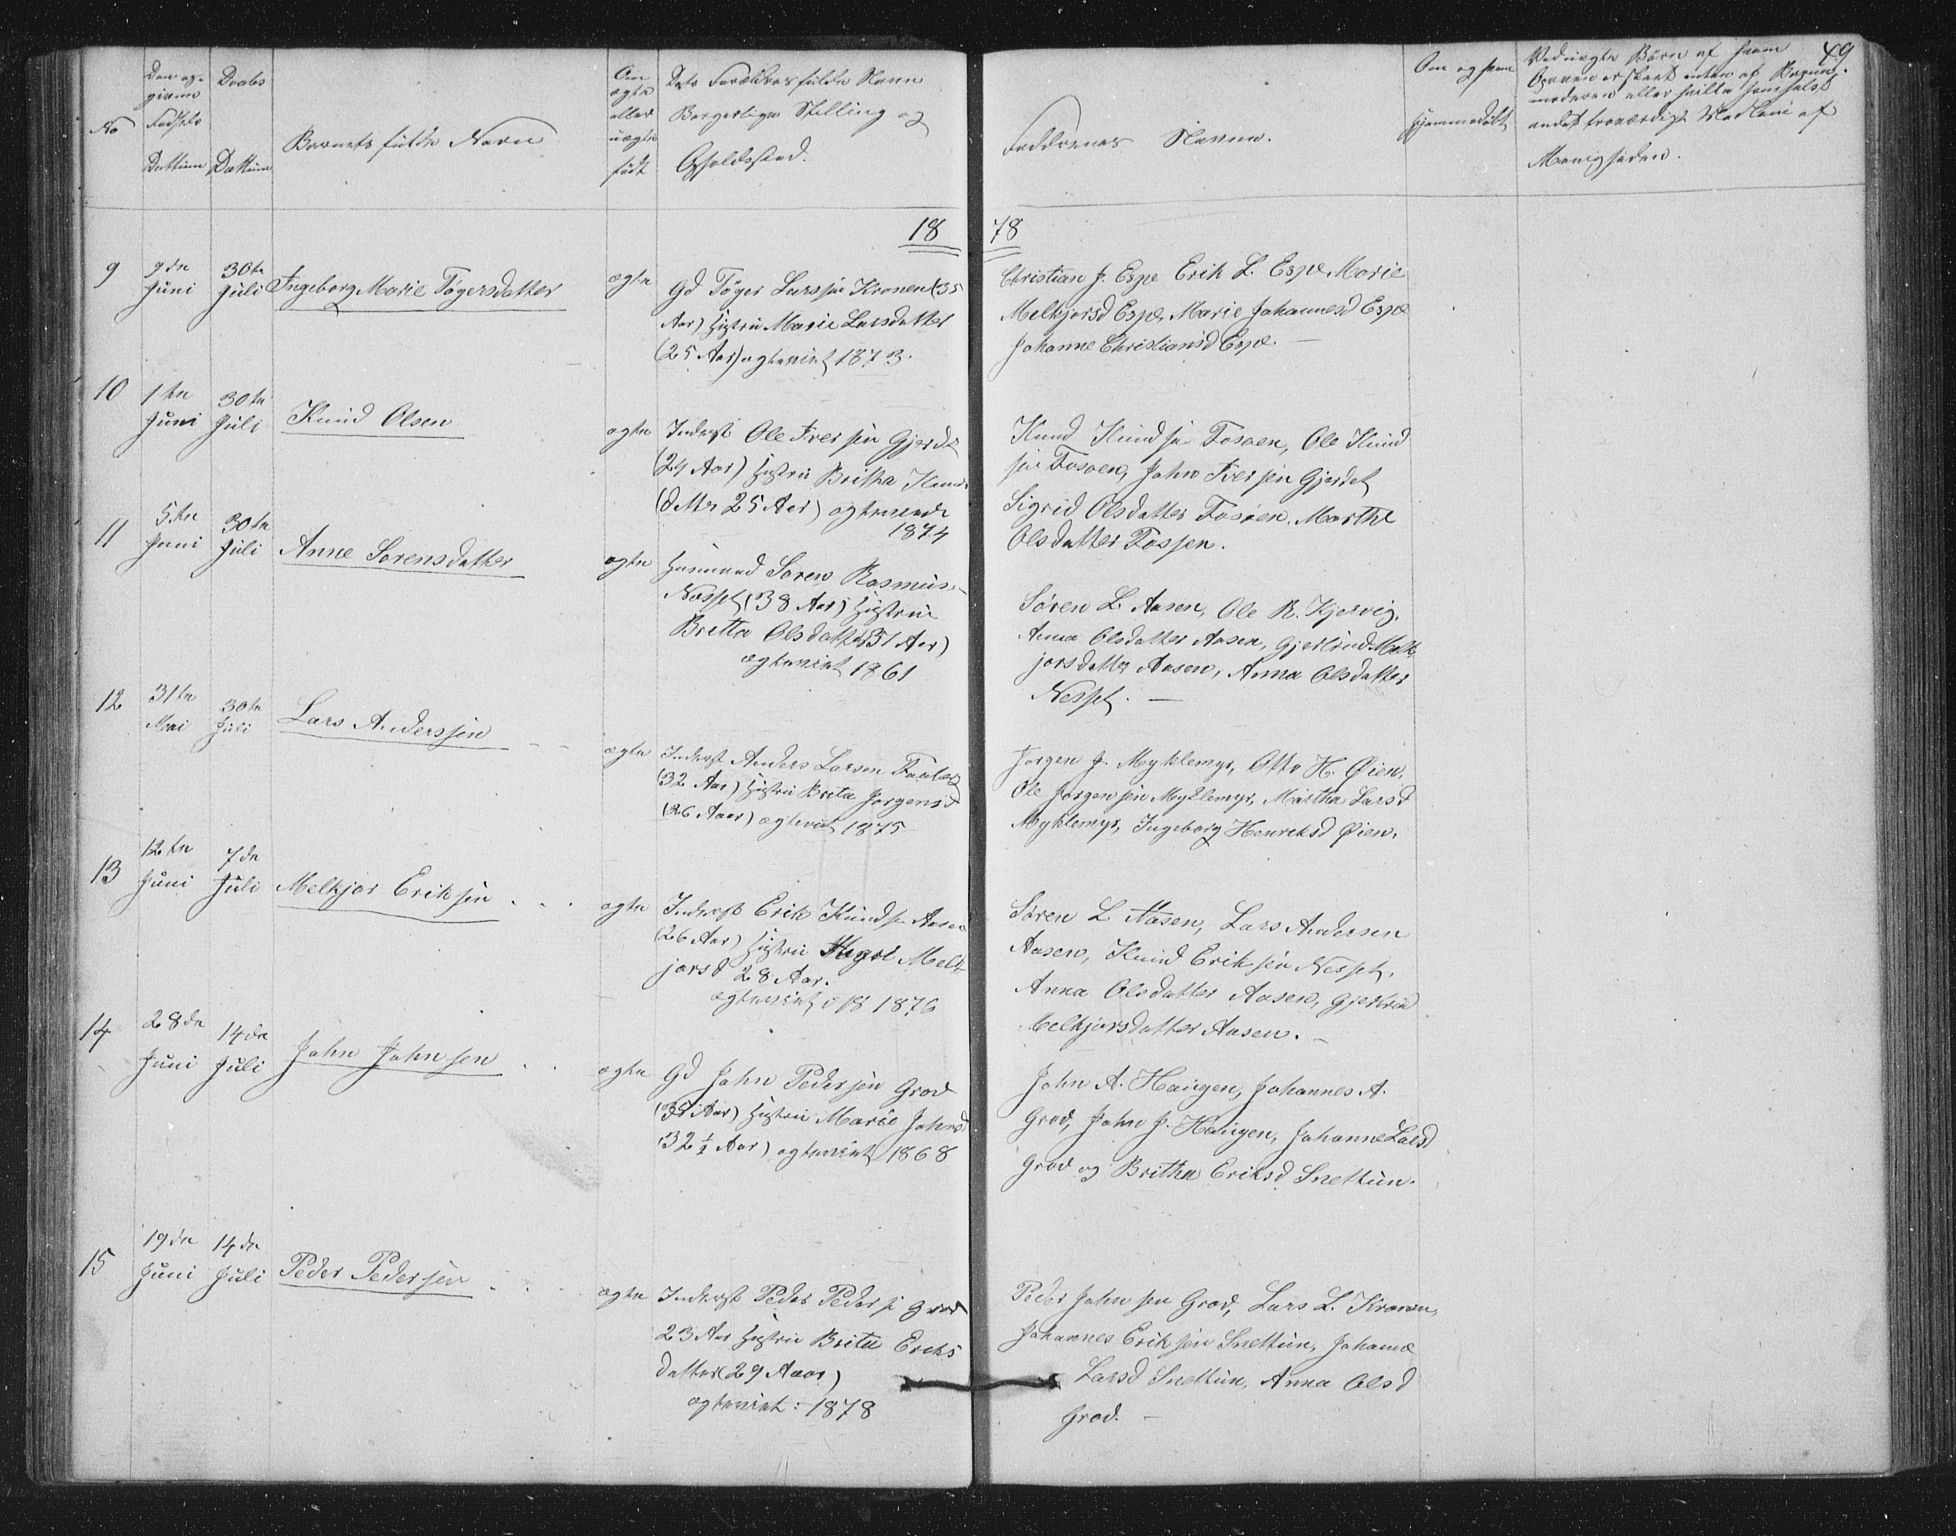 49
No
Den op-
givne
Fødsels
Dattum
Daabs
Dattum
Barnets fulde Navn
Om
ægte
eller
uægte
født
Dets Forældres fulde Navn
Borgerlige Stilling og
Opholdssted.
Faddernes Navne.
Om og hvem
hjemmedøbt
Ved uægte Børn af hvem
Opgaven er skeet enten af Barne-
moderen eller hvilke somhelst
andet troværdigt Medlem af
Menigheden.
1878
9
9de
Juni
30te
Juli
Ingeborg Marie Tøgersdatter
ægte
Gd Tøger Larssøn Kronen (35
Aar) Hustru Marie Larsdatter
(25 Aar) ægteviet 1873.
Christian J. Espe Erik L. Espe, Marie
Melkjorsd Espe, Marie Johannesd Espe
Johanne Christiansd Espe. —
10
1te
Juni
30te
Juli
Knud Olsen
ægte
Inderst Ole Iversøn Gjerde
(24 Aar) Hustru Britha Knuds
datter 25 Aar) ægteviede
1874
Knud Knudsøn Fosøen, Ole Knud
søn Fosøen, John Iversøn Gjerdet
Sigrid Olsdatter Fosøen, Marthe
Olsdatter Fossøen.
11
5te
Juni
30te
Juli
Anne Sorensdatter
ægte
Huusmand Søren Rasmus-
Nesset (38 Aar) Hustru
Britta Olsdatter (51 Aar)
ægteviet 1861
Søren L. Aasen, Ole R. Kjervig,
Anna Olsdatter Aasen, Gjertrud Melk
jorsdatter Aasen, Anna Olsdatter
Nesset. —
12
31te
Mai
30te
Juli
Lars Anderssøn
ægte
Inderst Anders Larsen
(32 Aar) Hustru Brita Jorgensd
(26 Aar) ægteviet 1875
Jorgen J. Myklemyr, Otto H. Øien,
Ole Jorgensøn Myklemyr, Martha Larsd
Myklemyr, Ingeborg Henriksd Øien.
13
12te
Juni
7de
Juli
Melkjor Eriksøn
ægte
Inderst Erik Knudsøn Aasen
(26 Aar) Hustru Melk
jorsd 28 Aar.
ægteviet 1876
Søren L. Aasen, Lars Andersen
Aasen, Knud Eriksøn Nesset,
Anna Olsdatter Aasen, Gjertrud
Melkjorsdatter Aasen. —
14
28de
Juni
14de
Juli
John Johnsen
ægte
Gd John Pedersøn Grov
Aar) Hustru Marie Johnsd
32½ Aar) ægteviet 1868
John A. Haugen, Johannes A.
Grov, John J. Haugen, Johanne Larsd
Grov og Britha Eriksd Snettun.
15
19de
Juni
14de
Juli
Peder Pedersøn
ægte
Inderst Peder Peders Grov
23 Aar Hustru Brita Eriks
datter (29 Aar)
ægteviet: 1878
Peder Johnsøn Grov, Lars L. Kronen,
Johannes Eriksøn Snettun, Johanne
Larsd Snettun, Anna Olsd
Grov. —